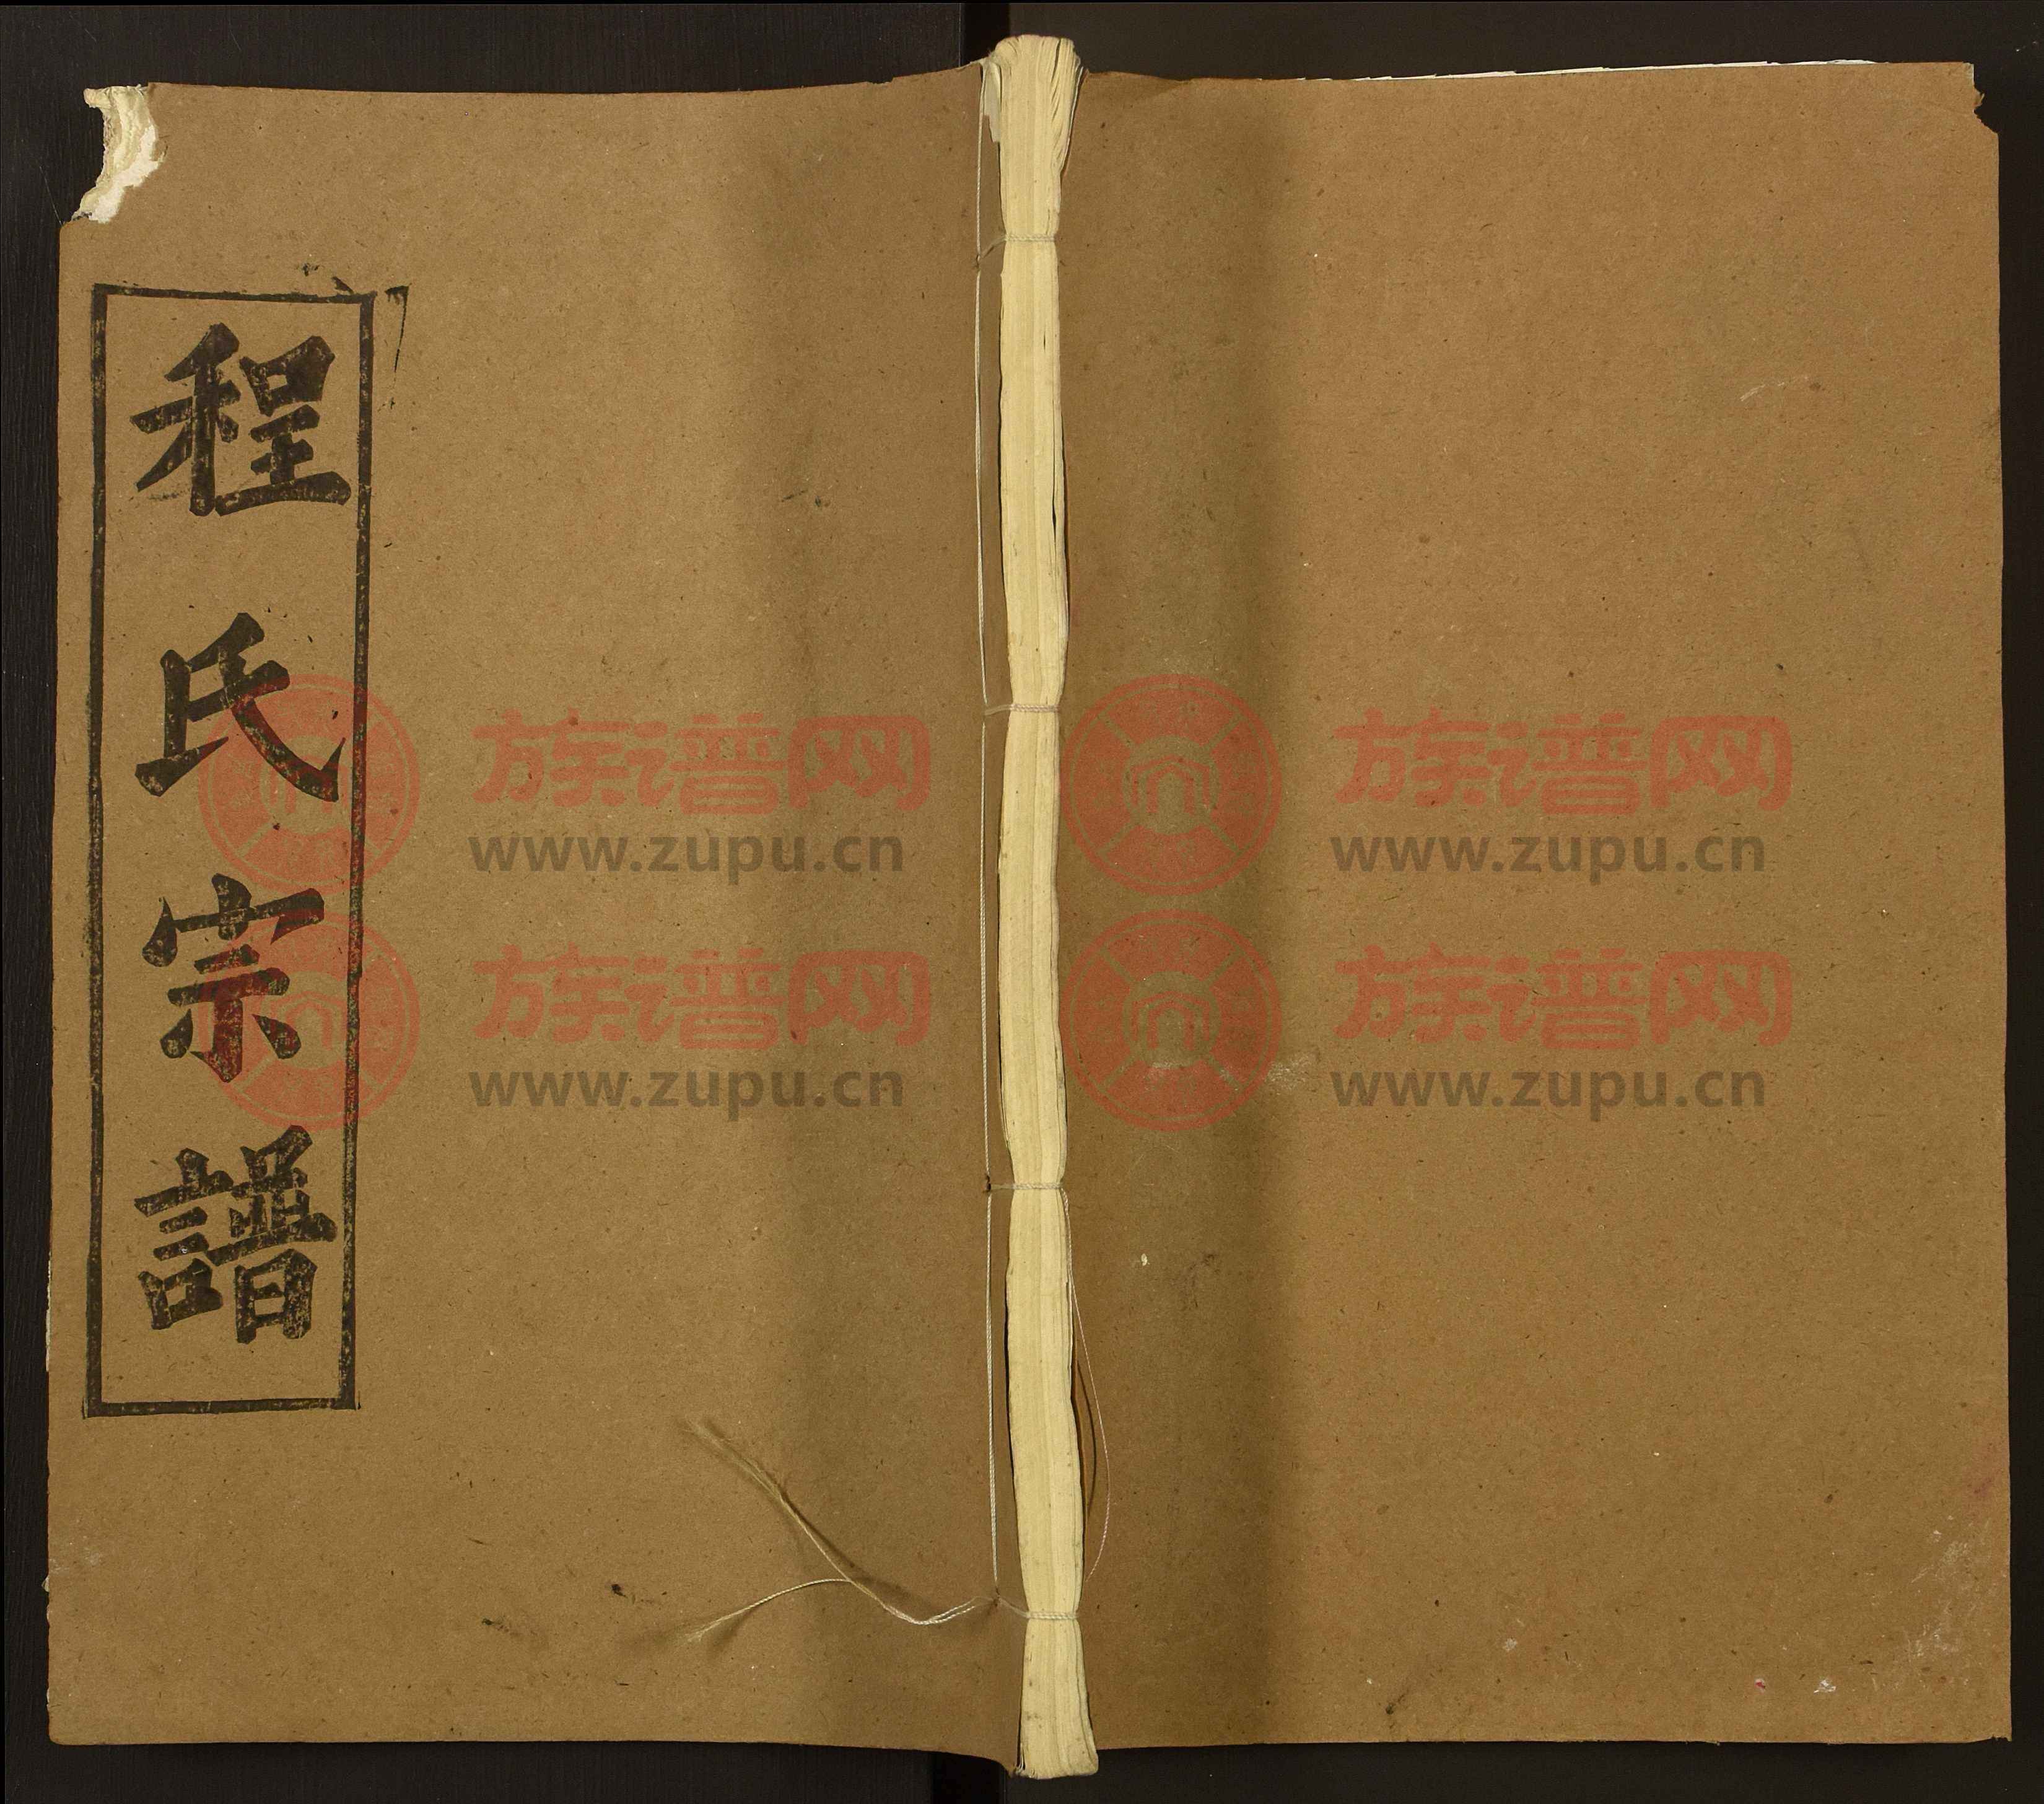 程氏宗譜
族谱网
www.zupu.cn
族谱网
www.zupu.cn
族谱网
www.zupu.cn
族谱网
www.zupu.cn